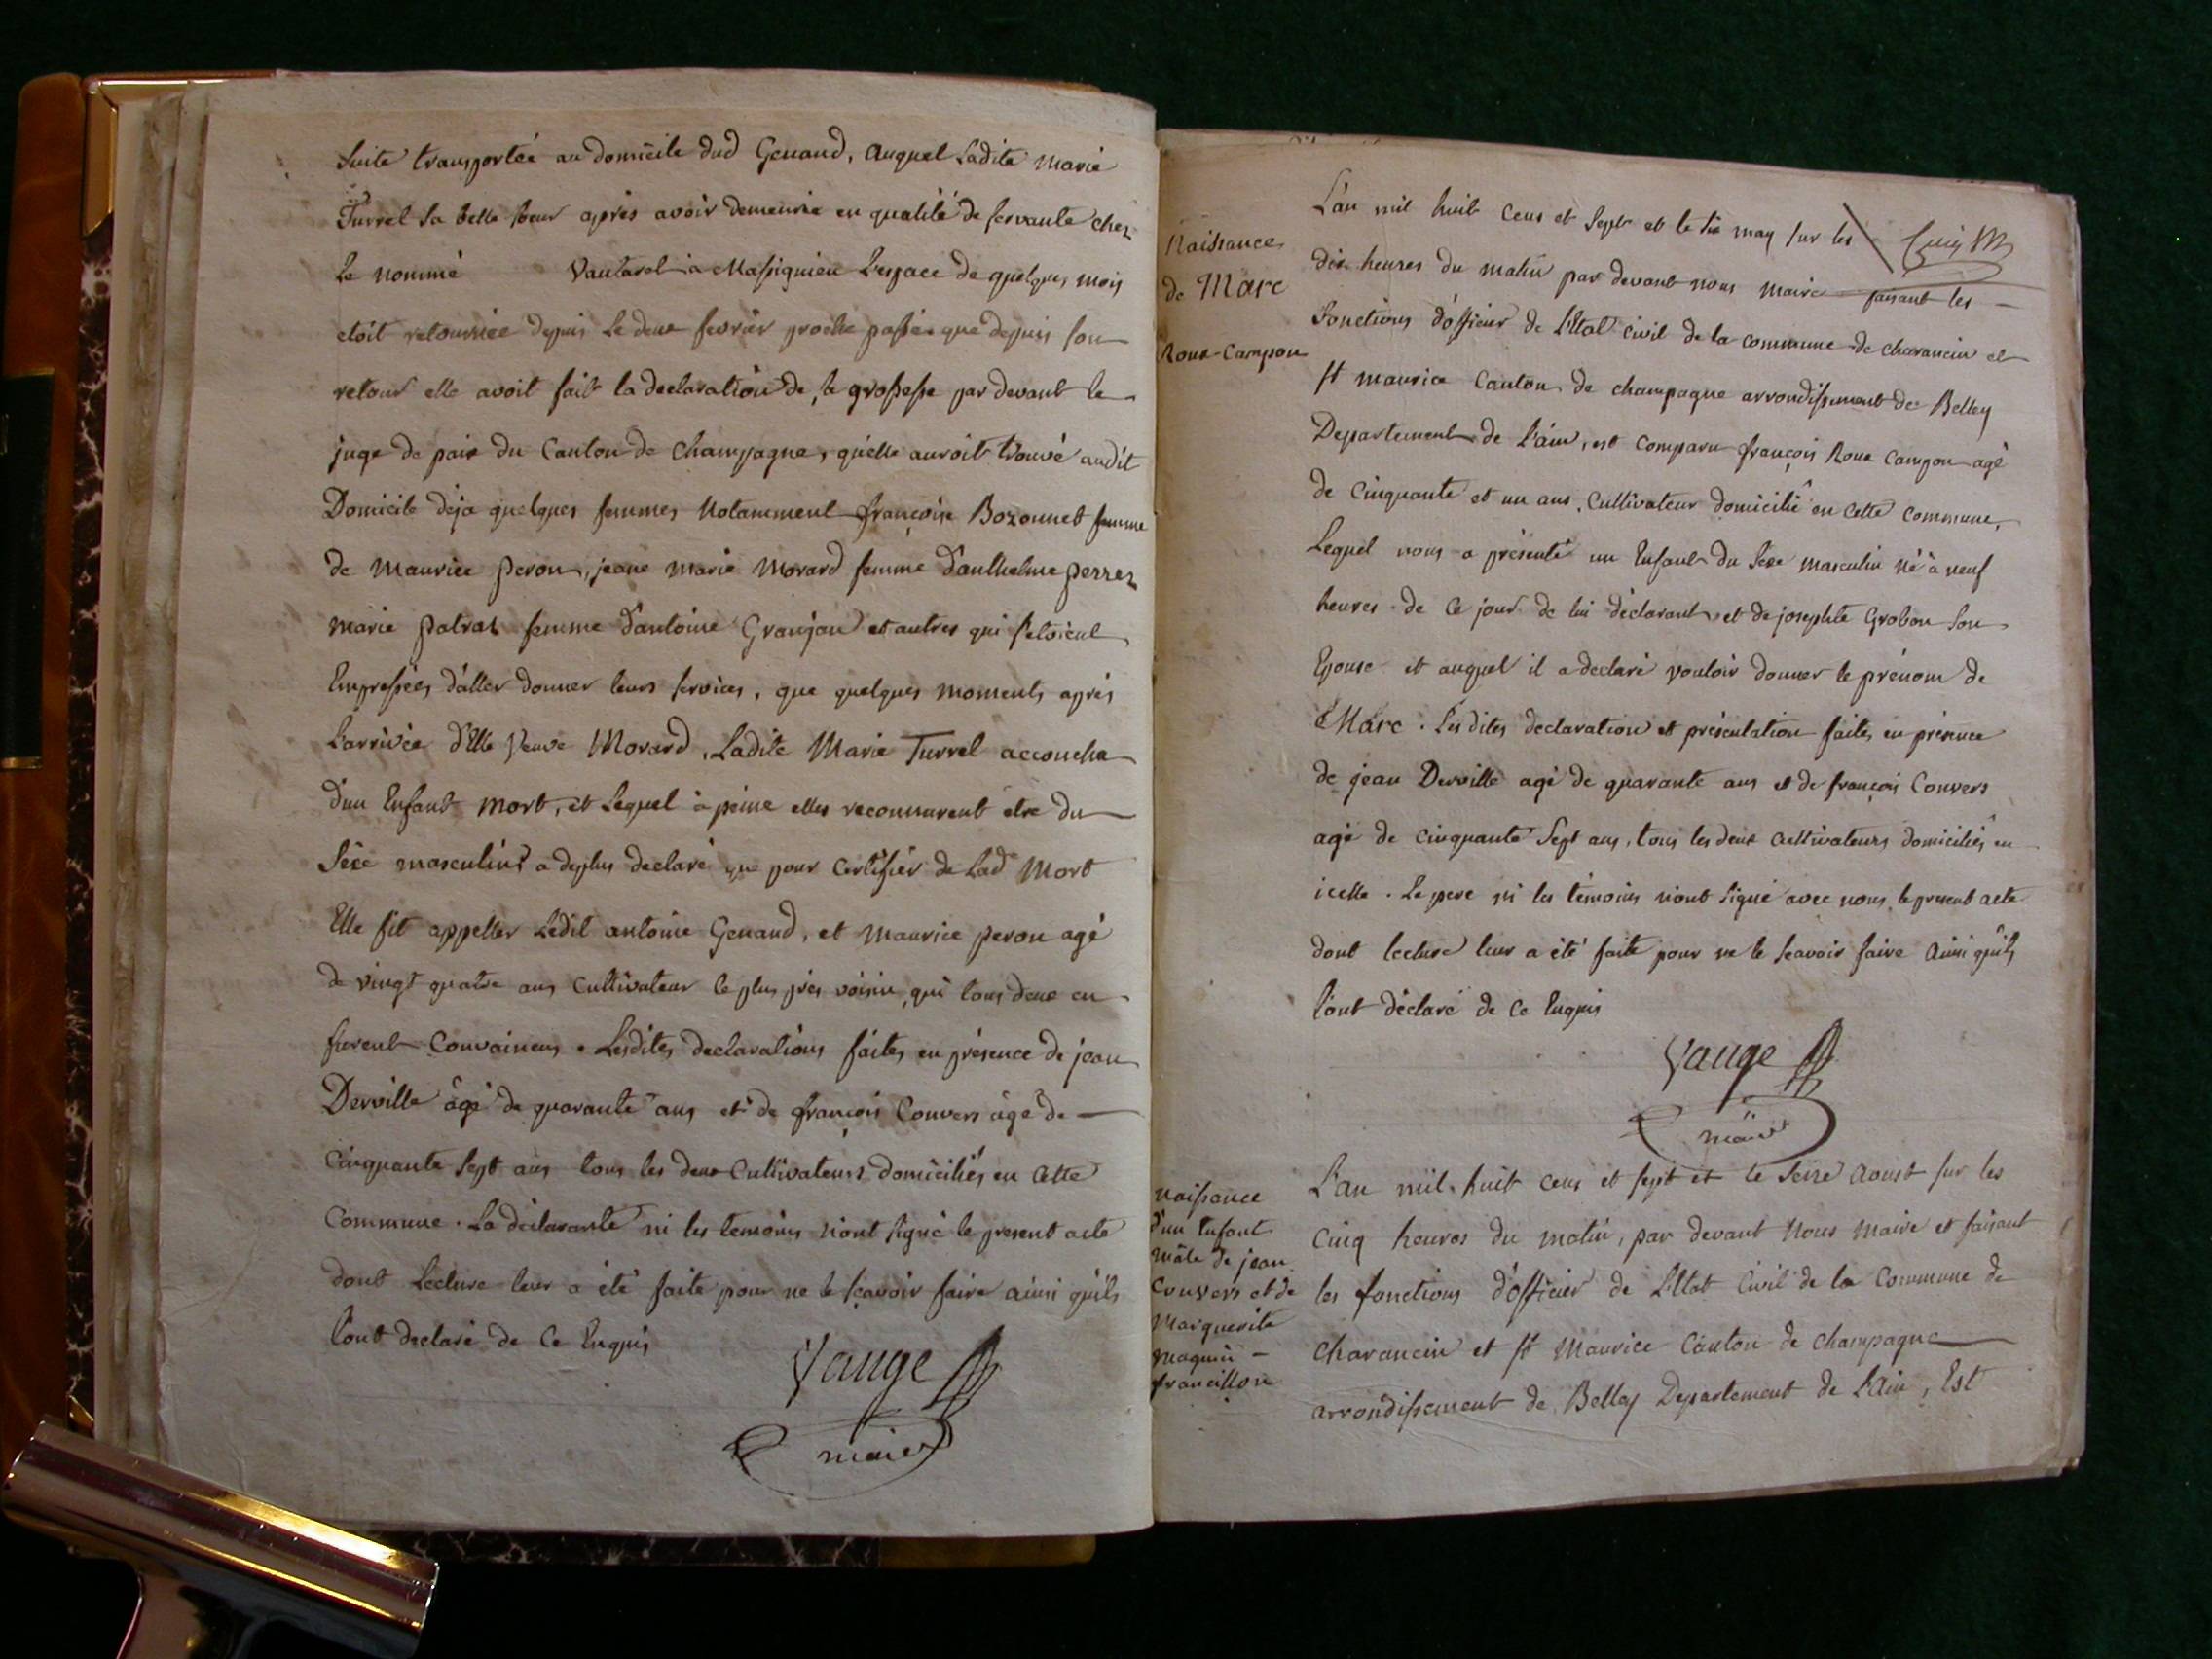 suite transportée au domicile dud Genand, auquel Ladite marie
Turrel sa belle soeur après avoir demeurée en qualité de servante chez
Le nommé Vautarel à Massignieu L'espace de quelques mois
etoit retournée depuis Le deux fevrier proche passé. que depuis son
retour elle avoit fait la declaration de sa grossesse par devant le
juge de paix du Canton de Champagne, qu'elle auroit trouvé audit
Domicile déja quelques femmes Notamment françoise Bozonnet femme
de Maurice peron, jeane marie Morard femme d'anthelme perrez
marie patras femme d'antoine Granjan et autres qui s'etoient
Empressées d'aller donner leurs services, que quelques moments après
L'arrivée d'Elle Veuve Morard, Ladite Marie Turrel accoucha
d'un Enfant mort, et Lequel à peine elles reconnurent être du
Sexe masculin, a deplus declaré que pour Certifier de Lad Mort
Elle fit appeller Ledit antoine Genand, et Maurice peron agé
de vingt quatre ans Cultivateur le plus près voisin, qui tous deux en
furent Convaincus. Lesdites declarations faites en présence de jean
Derville âgé de quarante ans et de françois Convers âgé de
Cinquante Sept ans tous les deux Cultivateurs domiciliés en Cette
Commune. La déclarante ni les temoins n'ont signé le present acte
dont Lecture leur a été faite pour ne le sçavoir faire ainsi qu'ils
l'ont declaré de Ce Enquis
Vauge
maire
Naissance
de Marc
Roux-Campon
L'an mil huit Cens et Sept et le six may sur les
dix heures du matin par devant nous maire faisant les
Fonctions d'officier de L'Etat civil de la commune de charancin et
st maurice Canton de champagne arrondissement de Belley
Departement de L'ain, est comparu françois Roux Campon agé
de Cinquante et un ans, Cultivateur domicilié en Cette Commune,
Lequel nous a présenté un Enfant du Sexe masculin né à neuf
heures de Ce jour de lui déclarant, et de josephte Grobon Son
Epouse et auquel il a declaré vouloir donner le prénom de
Marc. Les dites declaration et présentation faites en présence
de jean Derville agé de quarante ans et de françois Convers
agé de Cinquante Sept ans, tous les deux cultivateurs domiciliés en
icelle. Le pere ni les témoins n'ont signé avec nous le present acte
dont lecture leur a été faite pour ne le sçavoir faire Ainsi qu'ils
l'ont déclaré de Ce Enquis
Vauge
maire
naissance
d'un Enfant
mâle de jean
Convers et de
Marguerite
maguin-
francillon
L'an mil huit cens et sept et le Seize Aoust sur les
Cinq heures du matin, par devant Nous Maire et faisant
les fonctions d'officier de L'Etat Civil de la Commune de
Charancin et st Maurice Canton de Champagne
arrondissement de Belley Departement de L'Ain, Est